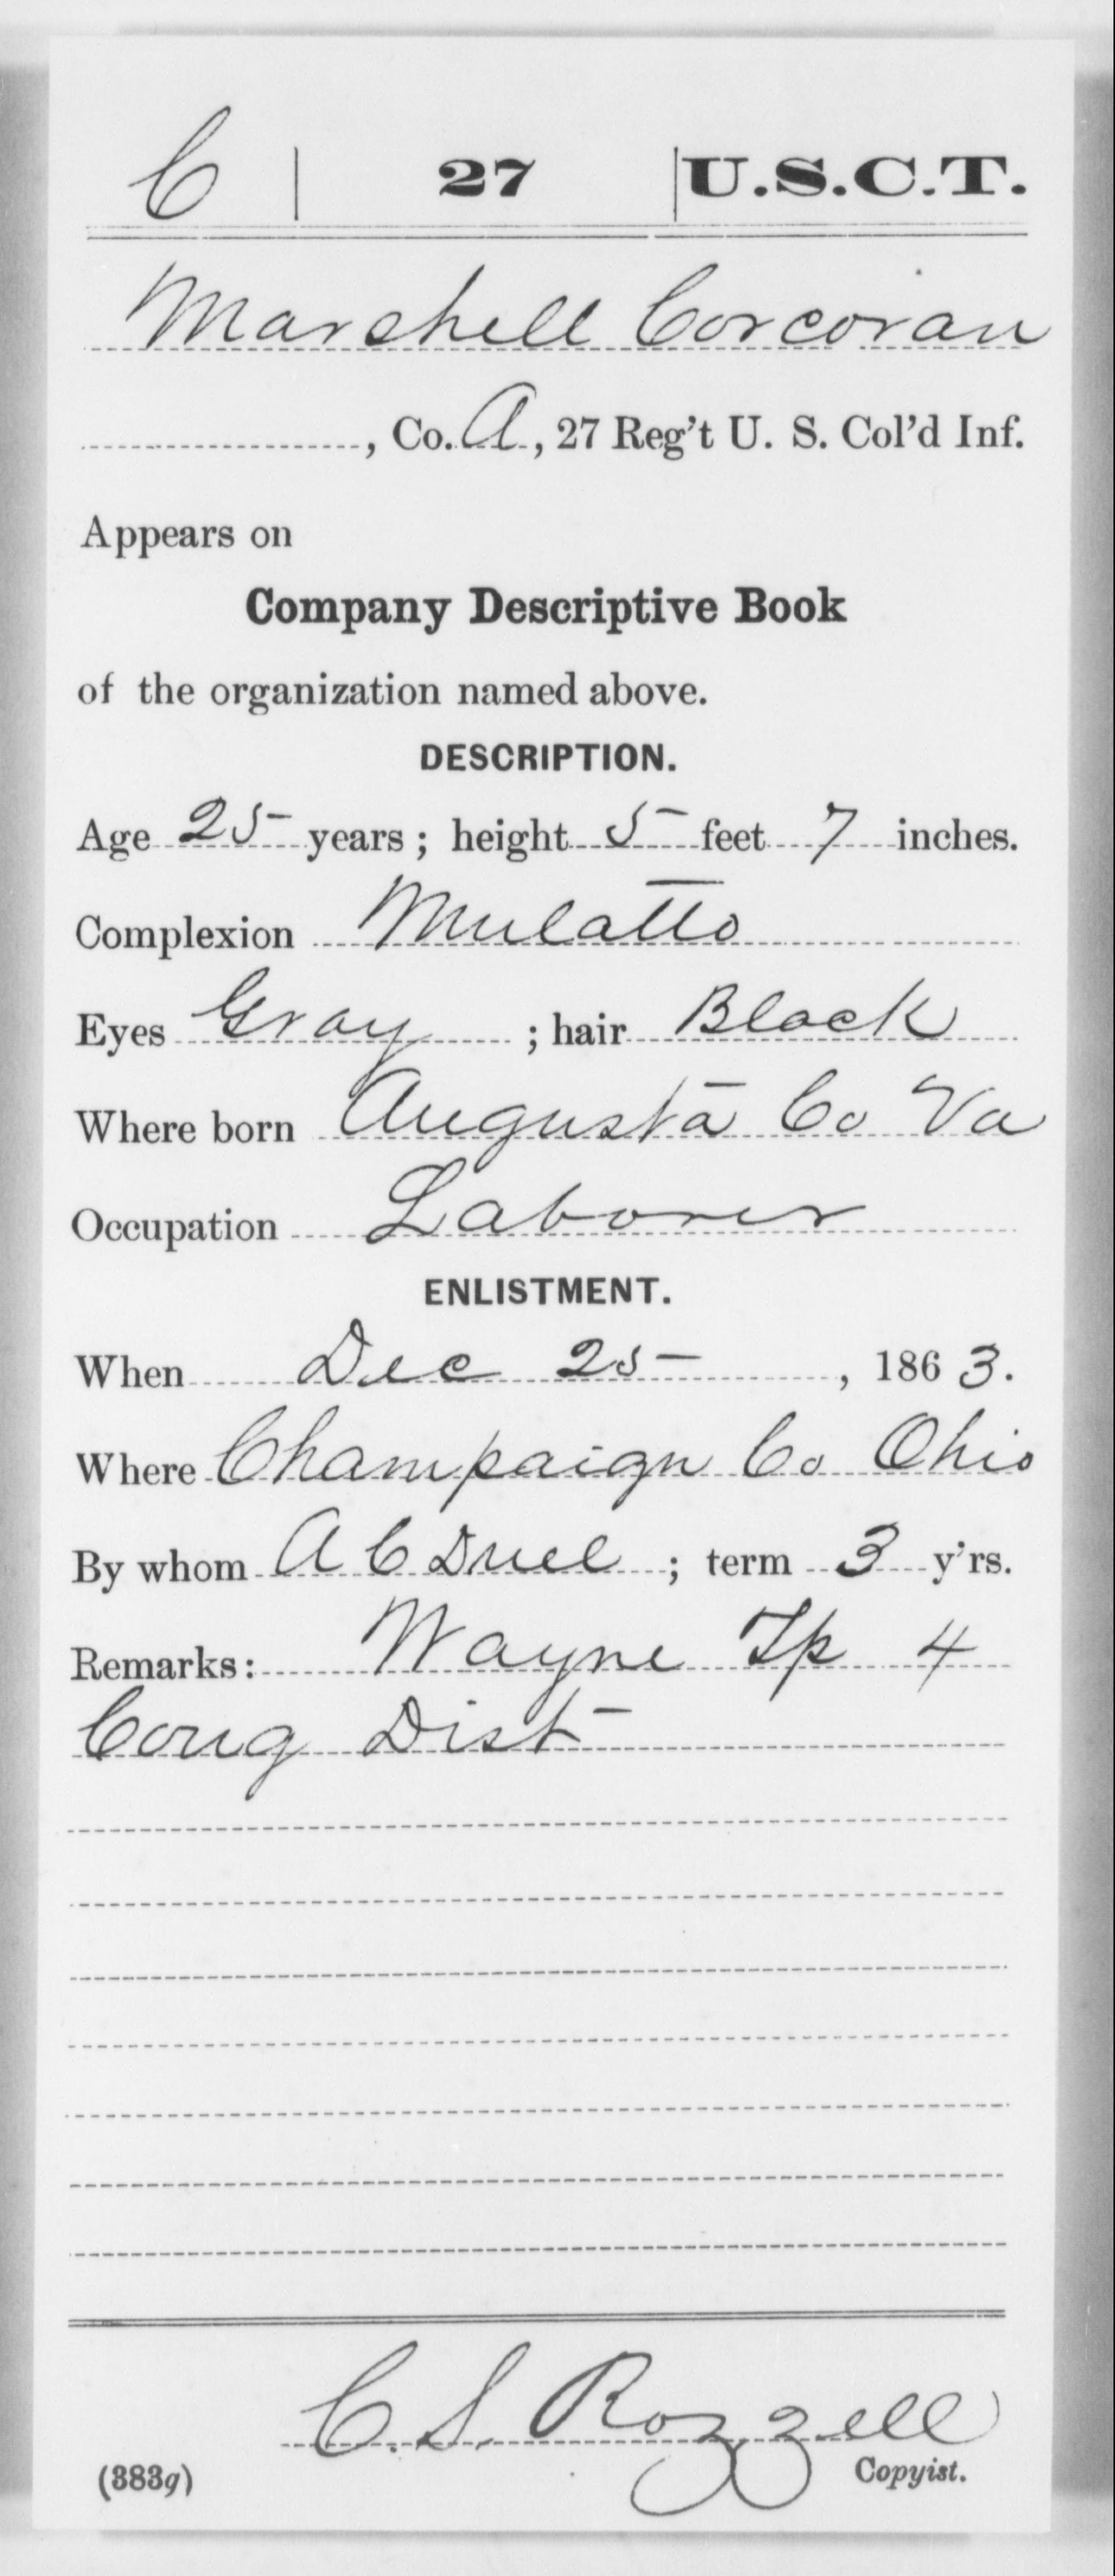 C | 27 | U.S.C.T.
Marshell Corcoran
, Co. A, 27 Reg't U. S. Col'd Inf.
Appears on
Company Descriptive Book
of the organization named above.
DESCRIPTION.
Age 25 years; height 5 feet 7 inches.
Complexion Mulatto
Eyes Gray ; hair Black
Where born Augusta Co Va
Occupation Laborer
ENLISTMENT.
When Dec 25, 1863.
Where Champaign Co Ohio
By whom A C Duel ; term 3 y'rs.
Remarks: Wayne Tp 4
Cong Dist
C. S. Rozzell
(383g) Copyist.